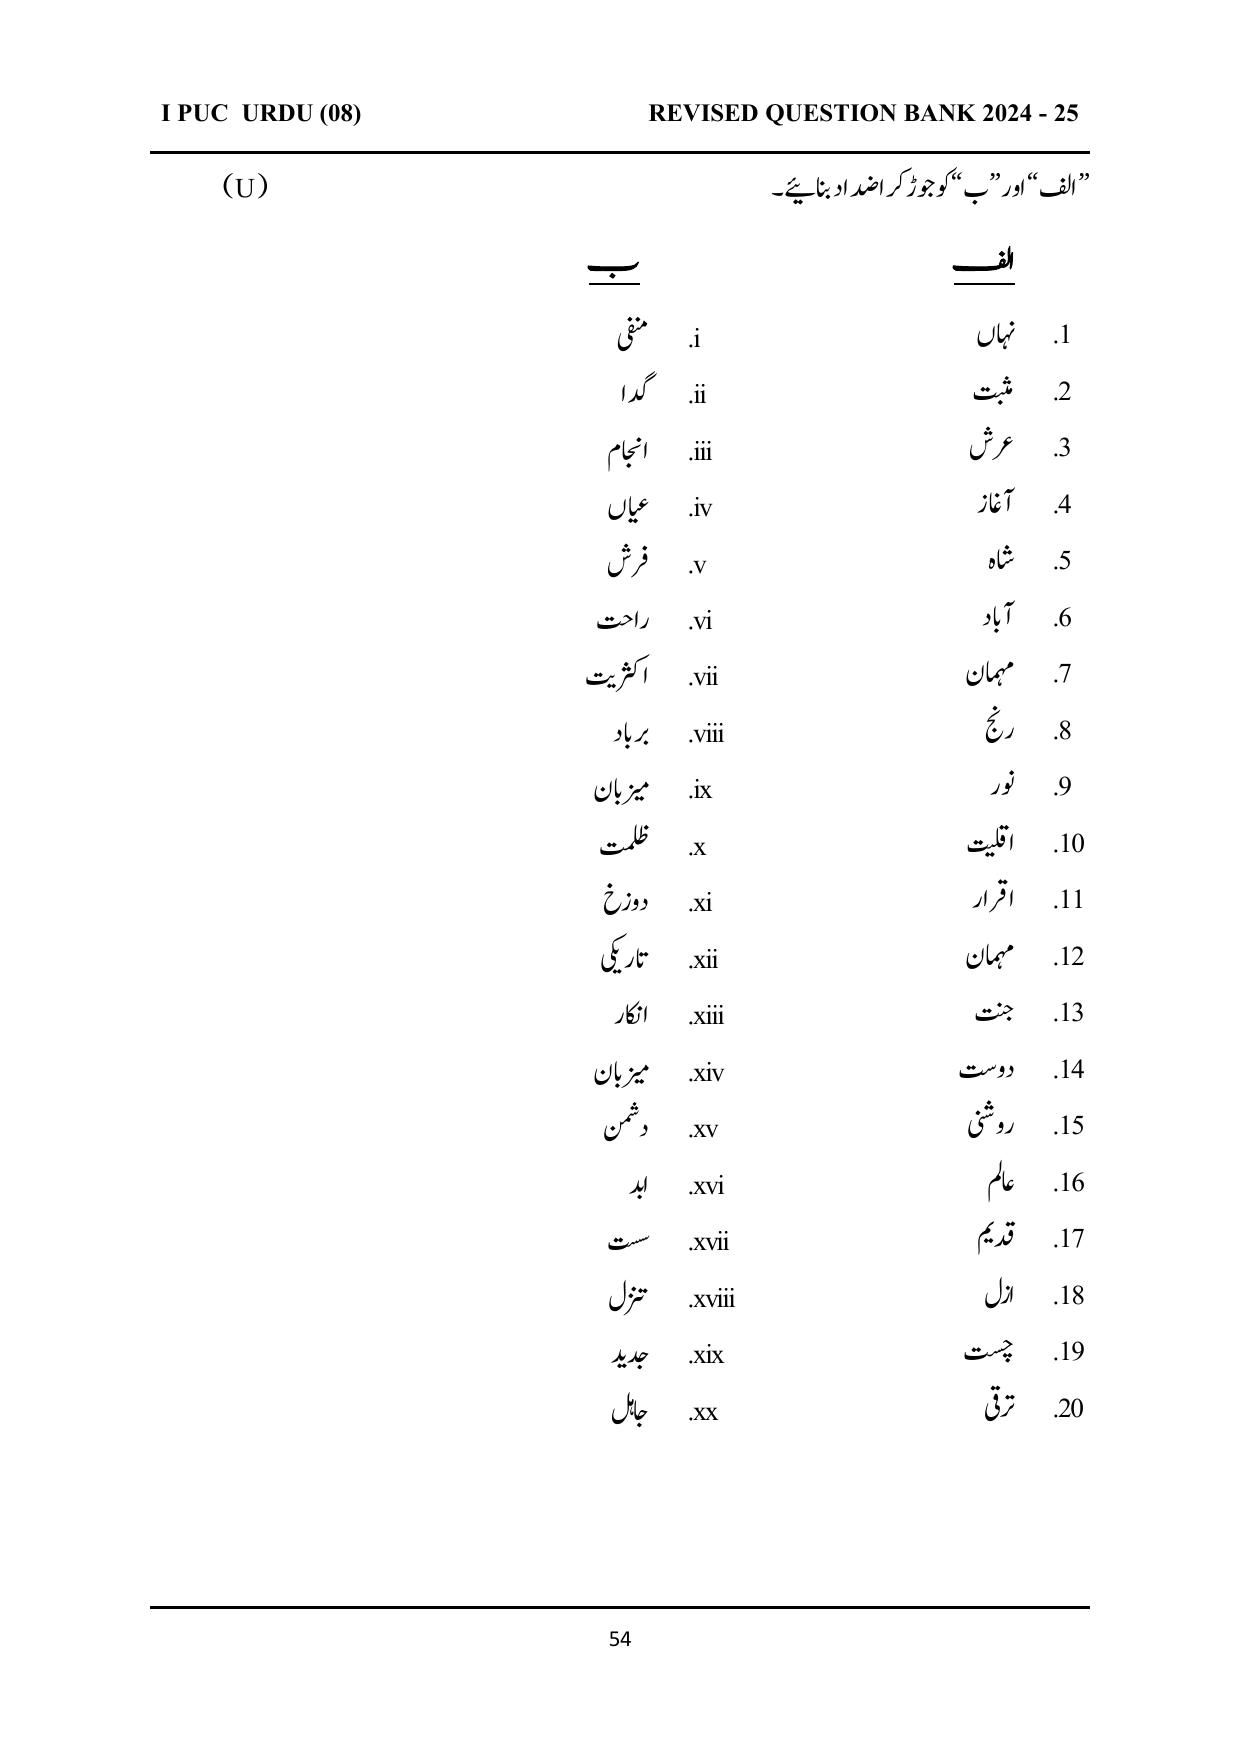 I PUC URDU (08) REVISED QUESTION BANK 2024 - 25
”الف“ اور ”ب“ کو جوڑ کر اضداد بنائیے۔ (U)
الف ب
1. نہاں i. منفی
2. مثبت ii. گدا
3. عرش iii. انجام
4. آغاز iv. عیاں
5. شاہ v. فرش
6. آباد vi. راحت
7. مہمان vii. اکثریت
8. رنج viii. برباد
9. نور ix. میزبان
10. اقلیت x. ظلمت
11. اقرار xi. دوزخ
12. مہمان xii. تاریکی
13. جنت xiii. انکار
14. دوست xiv. میزبان
15. روشنی xv. دشمن
16. عالم xvi. ابد
17. قدیم xvii. سست
18. ازل xviii. تنزل
19. چست xix. جدید
20. ترقی xx. جاہل
54